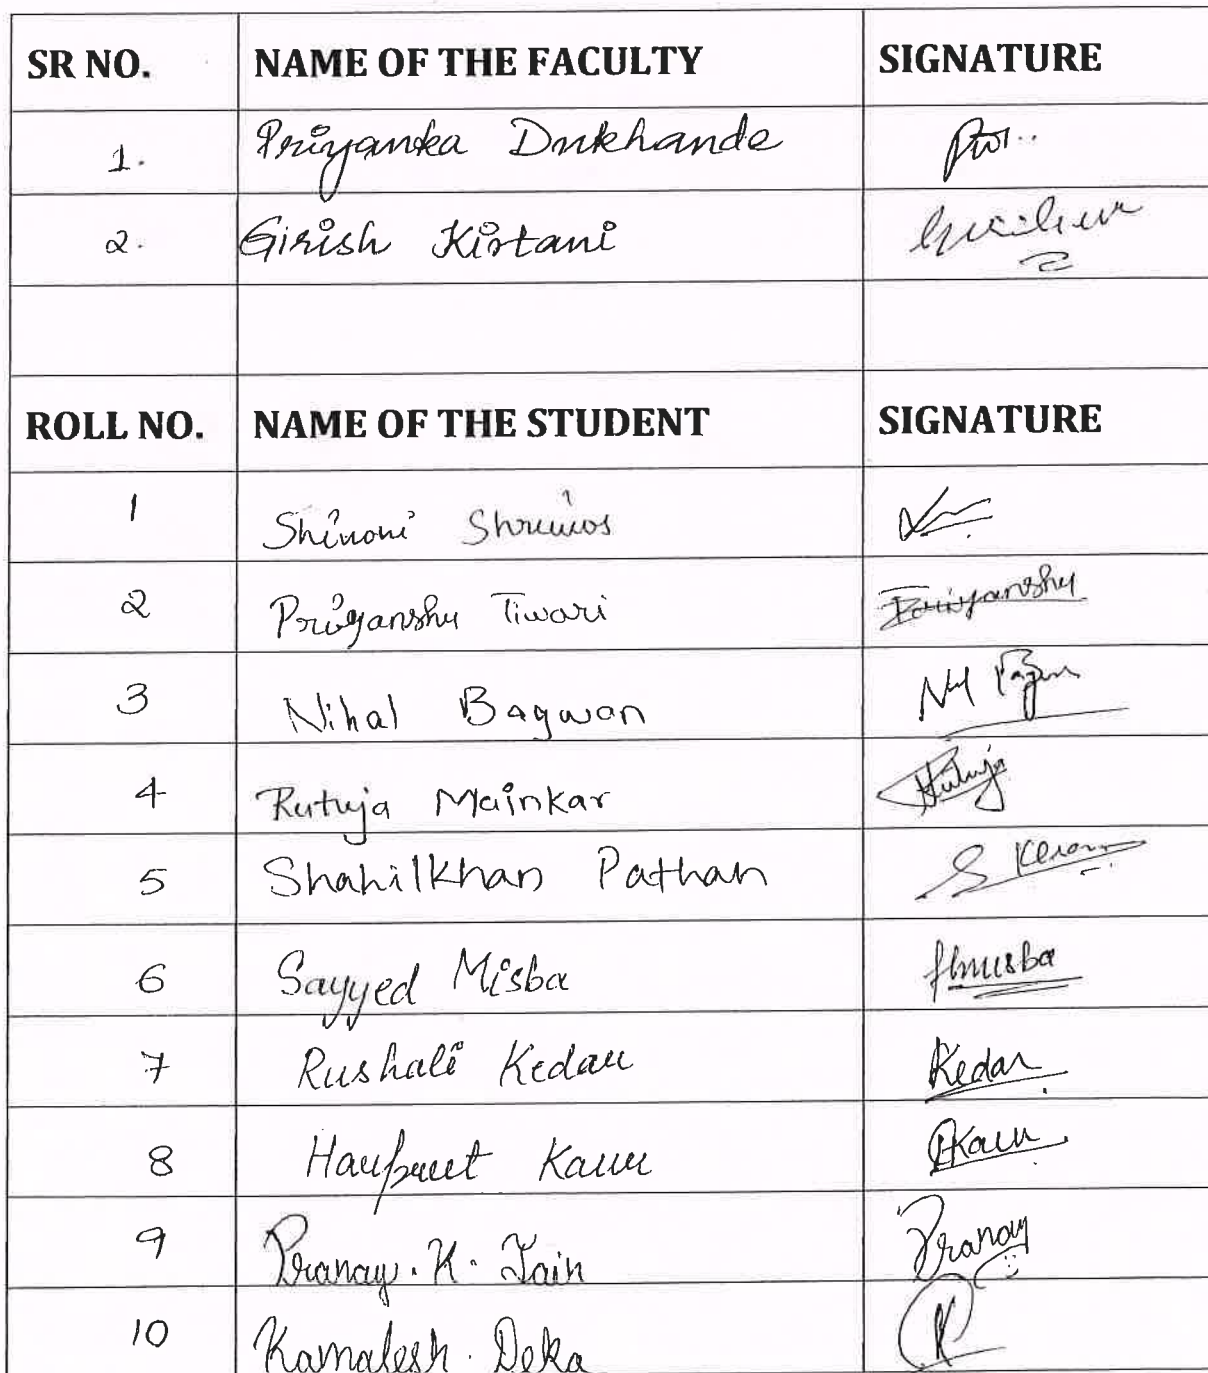 SR NO. NAME OF THE FACULTY SIGNATURE
1. Priyanka Dukhande
2. Girish Kirtani
ROLL NO. NAME OF THE STUDENT SIGNATURE
1
2 Priyanshu Tiwari Priyanshu
3 Nihal Bagwan
4 Rutuja Mainkar Rutuja
5 Shahilkhan Pathan
6 Sayyed Misba
7 Rushali Kedar Kedar
8 Harpreet Kaur Kaur
9 Pranay. K. Jain Pranay
10 Kamalesh. Deka K